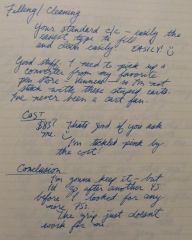 Filling/Cleaning
Your standard c/c - easily the
easiest type to fill
and clean easily. EASILY!
Good stuff. I need to pick up a
converter from my favorite
pen store so I'm not
stuck with these stupid carts.
I've never been a cart fan.
Cost
$85? That's good if you ask
me.
I'm tickled pink by
the cost!
Conclusion
I'm gonna keep it - but
after another
before I looked for any
more
The grip just doesn't
work for me.